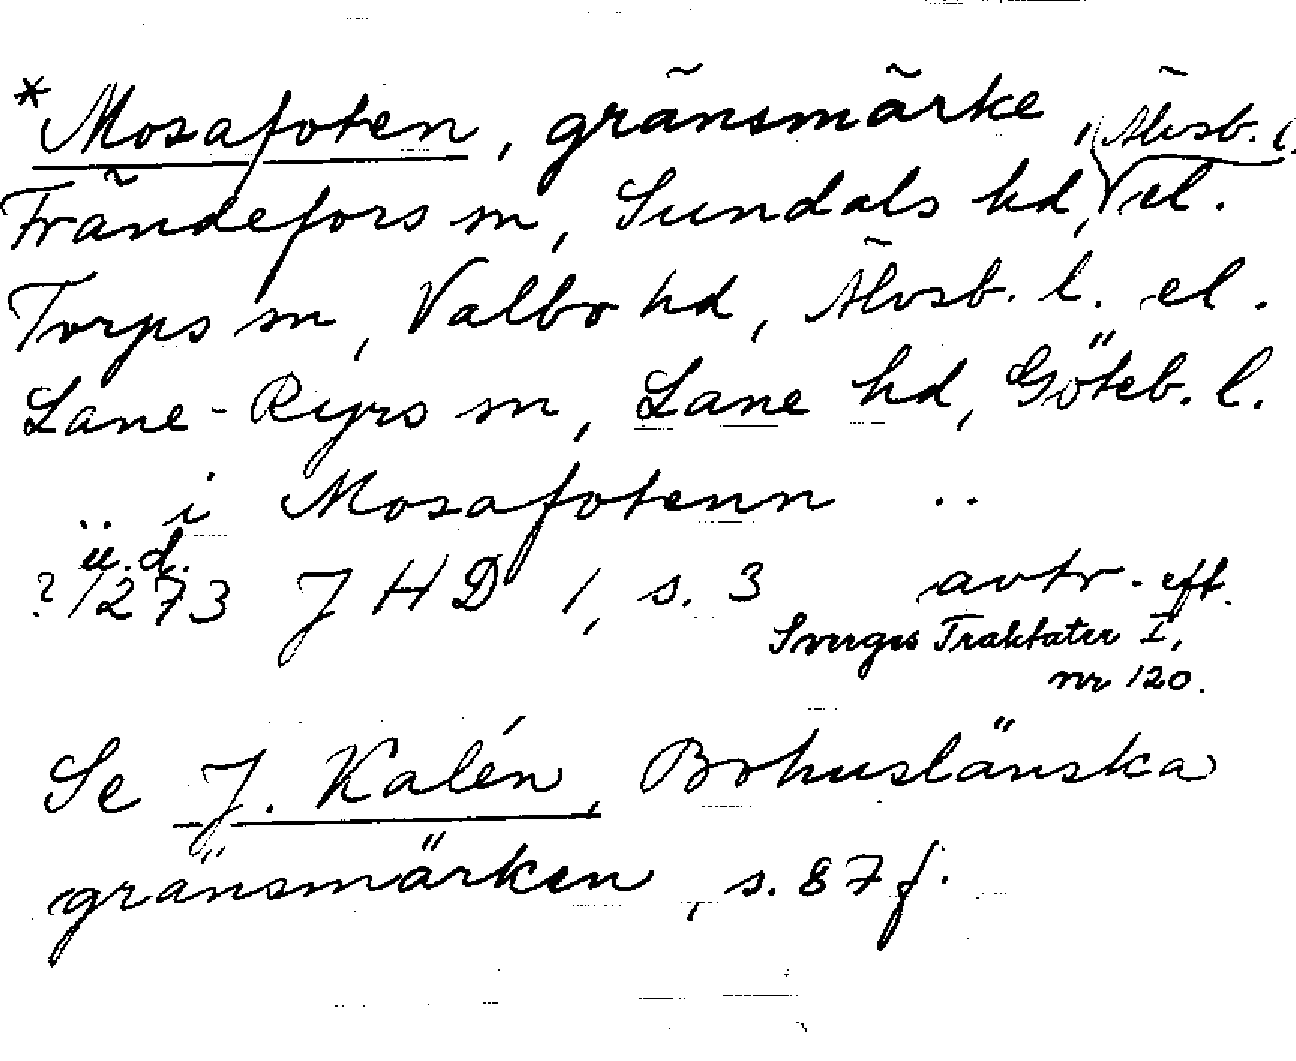 *Mosafoten, gränsmärke, Älvsb. l.
Frändefors sn, Sundals hd, el.
Torps sn, Valbo hd, Älvsb. l. el.
Lane-Ryrs sn, Lane hd, Göteb. l.
.. i Mosafotenn ..
u.d.
? 1273 JHD 1, s. 3 avtr. eft.
Sverges Traktater I,
nr 120.
Se J. Kalén, Bohuslänska
gränsmärken, s. 87 f.